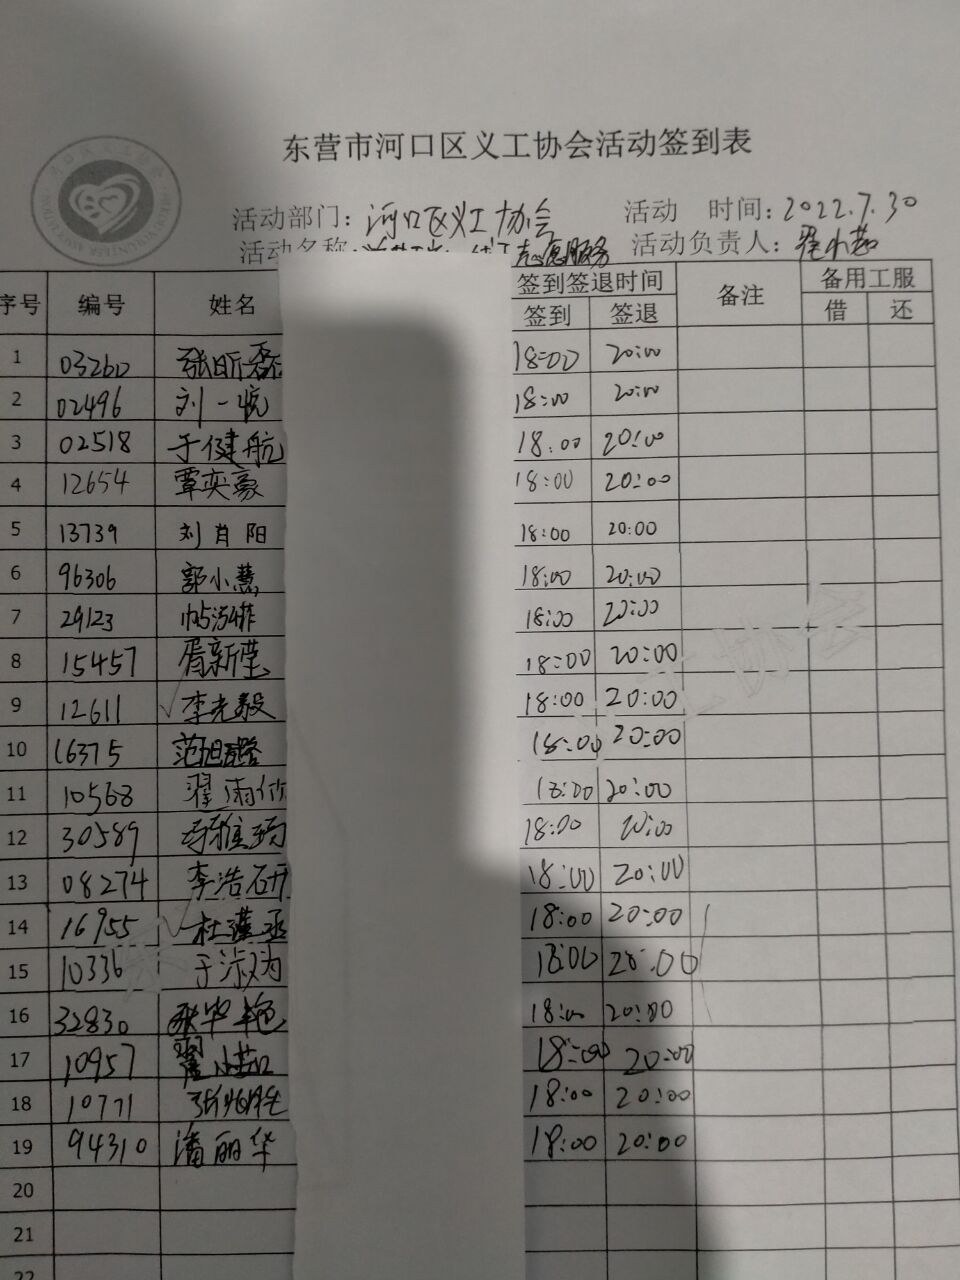 东营市河口区义工协会活动签到表
活动部门：河口区义工协会 活动 时间：2022.7.30
活动名称： 志愿服务 活动负责人：翟小茹
序号 编号 姓名 签到签退时间 备注 备用工服
签到 签退 借 还
1 03260 张昕 18:00 20:00
2 02496 刘一悦 18:00 20:00
3 02518 于健航 18:00 20:00
4 12654 覃奕豪 18:00 20:00
5 13739 刘肖阳 18:00 20:00
6 96306 郭小慧 18:00 20:00
7 29123 18:00 20:00
8 15457 胥新莹 18:00 20:00
9 12611 ✓李光毅 18:00 20:00
10 16375 范旭 18:00 20:00
11 10568 翟雨 18:00 20:00
12 30589 18:00 20:00
13 08274 李浩研 18:00 20:00
14 16955 ✓杜瑾丞 18:00 20:00
15 10336 于淑为 18:00 20:00
16 32830 张华艳 18:00 20:00
17 10957 翟小茹 18:00 20:00
18 10771 18:00 20:00
19 94310 潘丽华 18:00 20:00
20
21
22